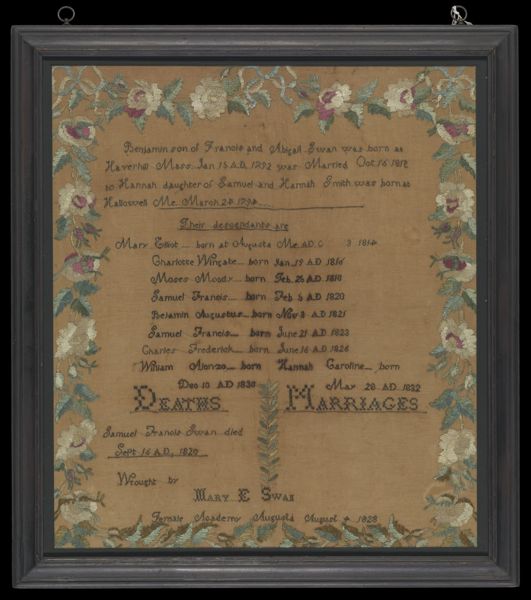 Benjamin son of Francis and Abigail Swan was born at
Haverhill Mass. Jan 15 A.D. 1792 was Married Oct 16 1812
to Hannah daughter of Samuel and Hannah Smith was born at
Hallowell Me. March 24 1794
Their descendants are
Mary Elliot born at Augusta Me. A.D. 3 1814
Charlotte Wingate born Jan 19 A.D 1816
Moses Moody born Feb. 26 A.D 1818
Samuel Francis born Feb 6 A.D 1820
Benjamin Augustus born Nov 8 A.D 1821
Samuel Francis born June 21 A.D 1823
Charles Frederick born June 16 A.D 1826
William Alonzo born Hannah Caroline born
Dec 10 A.D 1830 May 28 A.D. 1832
DEATHS MARRIAGES
Samuel Francis Swan died
Sept 16 A.D. 1820
Wrought by
MARY E SWAN
Female Academy Augusta August 4 1828